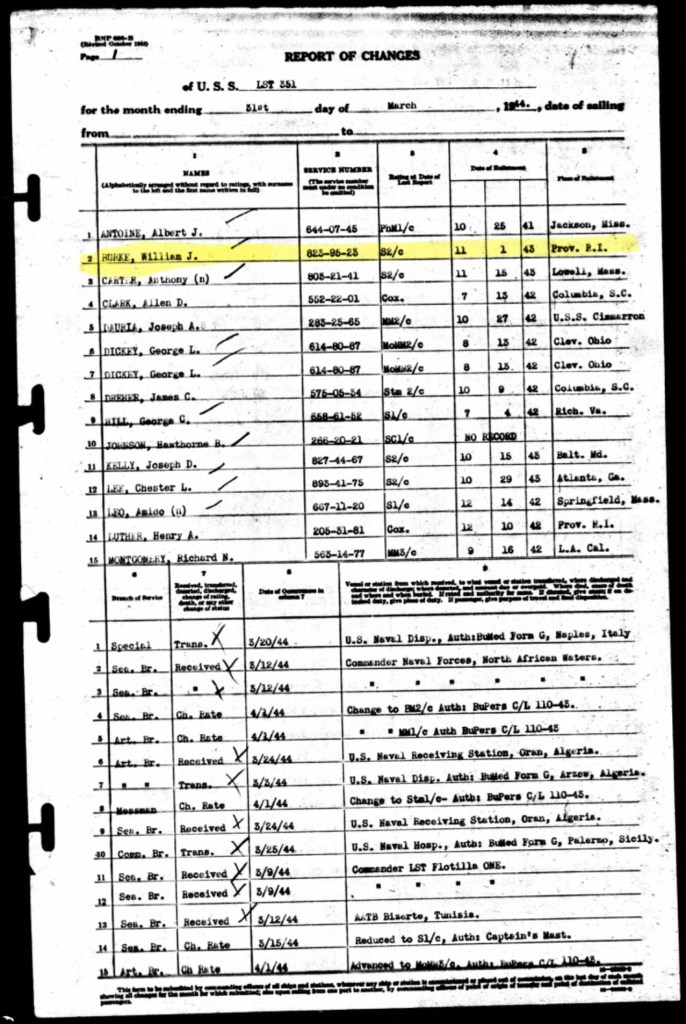 Page 1
REPORT OF CHANGES
of U. S. S. LST 351
for the month ending 31st day of March , 1944. , date of sailing
from to
1 2 3 4 5
NAMES SERVICE NUMBER Rating at Date of Last Report Date of Enlistment Place of Enlistment
(Alphabetically arranged without regard to ratings, with surname to the left and the first name written in full) (The service number must under no condition be omitted)
1 ANTOINE, Albert J. 644-07-45 PhM1/c 10 25 41 Jackson, Miss.
2 BURKE, William J. 823-95-23 S2/c 11 1 43 Prov. R.I.
3 CARTER, Anthony (n) 805-21-41 S2/c 11 15 43 Lowell, Mass.
4 CLARK, Allen D. 552-22-01 Cox. 7 13 42 Columbia, S.C.
5 DAURIA, Joseph A. 283-25-65 MM2/c 10 27 42 U.S.S. Cimmarron
6 DICKEY, George L. 614-80-87 MoMM2/c 8 13 42 Clev. Ohio
7 DICKEY, George L. 614-80-87 MoMM2/c 8 13 42 Clev. Ohio
8 DREHER, James C. 575-05-54 Stm 2/c 10 9 42 Columbia, S.C.
9 HILL, George C. 658-61-52 S1/c 7 4 42 Rich. Va.
10 JOHNSON, Hawthorne B. 266-20-21 SC1/c NO RECORD
11 KELLY, Joseph D. 827-44-67 S2/c 10 15 43 Balt. Md.
12 LEE, Chester L. 893-41-75 S2/c 10 29 43 Atlanta, Ga.
13 LEO, Amido (n) 667-11-20 S1/c 12 14 42 Springfield, Mass.
14 LUTHER, Henry A. 205-31-81 Cox. 12 10 42 Prov. R.I.
15 MONTGOMERY, Richard N. 563-14-77 MM3/c 9 16 42 L.A. Cal.
6 7 8 9
Branch of Service Received, transferred, deserted, discharged, change of rating, death, or any other change of status Date of Occurrence in column 7
1 Special Trans. X 3/20/44 U.S. Naval Disp., Auth:BuMed Form G, Naples, Italy
2 Sea. Br. Received X 3/12/44 Commander Naval Forces, North African Waters.
3 Sea. Br. " X 3/12/44 " " " " "
4 Sea. Br. Ch. Rate 4/1/44 Change to BM2/c Auth: BuPers C/L 110-43.
5 Art. Br. Ch. Rate 4/1/44 " " MM1/c Auth BuPers C/L 110-43
6 Art. Br. Received X 3/24/44 U.S. Naval Receiving Station, Oran, Algeria.
7 " " Trans. X 3/3/44 U.S. Naval Disp. Auth: BuMed Form G, Arzew, Algeria.
8 Messman Ch. Rate 4/1/44 Change to Stm1/c- Auth: BuPers C/L 110-43.
9 Sea. Br. Received X 3/24/44 U.S. Naval Receiving Station, Oran, Algeria.
10 Comm. Br. Trans. X 3/25/44 U.S. Naval Hosp., Auth: BuMed Form G, Palermo, Sicily.
11 Sea. Br. Received X 3/9/44 Commander LST Flotilla ONE.
12 Sea. Br. Received X 3/9/44 " " " "
13 Sea. Br. Received X 3/12/44 AATB Bizerte, Tunisia.
14 Sea. Br. Ch. Rate 3/15/44 Reduced to S1/c, Auth: Captain's Mast.
15 Art. Br. Ch Rate 4/1/44 Advanced to MoMM3/c, Auth: BuPers C/L 110-43.